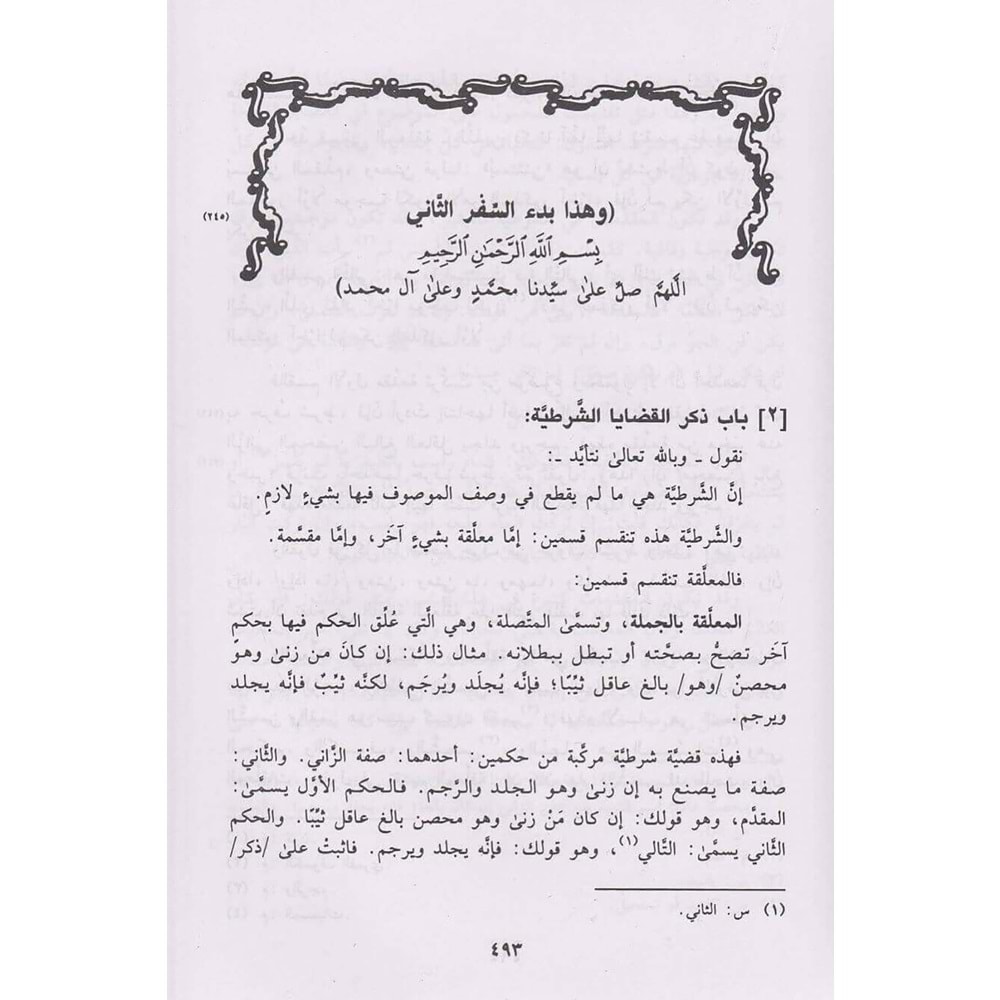 (وهذا بدء السِّفْر الثَّاني
(٢٤٥)
بِسْمِ اللَّهِ الرَّحْمَٰنِ الرَّحِيمِ
اللَّهمَّ صلِّ علىٰ سيِّدنا محمَّدٍ وعلىٰ آل محمد)
[٢] باب ذكر القضايا الشَّرطيَّة:
نقول ـ وبالله تعالىٰ نتأيَّد ـ:
إنَّ الشَّرطيَّة هي ما لم يقطع في وصف الموصوف فيها بشيءٍ لازمٍ.
والشَّرطيَّة هذه تنقسم قسمين: إمَّا معلَّقة بشيءٍ آخَر، وإمَّا مقسَّمة.
فالمعلَّقة تنقسم قسمين:
المعلَّقة بالجملة، وتسمَّىٰ المتَّصلة، وهي الَّتي عُلِّق الحكم فيها بحكمٍ
آخَر تصحُّ بصحَّته أو تبطل ببطلانه. مثال ذلك: إن كانَ مَن زنىٰ وهو
محصنٌ /وهو/ بالغ عاقل ثيِّبًا؛ فإنَّه يُجلَد ويُرجَم، لكنَّه ثيِّبٌ فإنَّه يجلد
ويرجم.
فهذه قضيَّة شرطيَّة مركَّبة من حكمين: أحدهما: صفة الزَّاني. والثَّاني:
صفة ما يصنع به إن زنىٰ وهو الجلد والرَّجم. فالحكم الأوَّل يسمَّىٰ:
المقدَّم، وهو قولك: إن كان مَنْ زنىٰ وهو محصن بالغ عاقل ثيِّبًا. والحكم
الثَّاني يسمَّىٰ: التَّالي(١)، وهو قولك: فإنَّه يجلد ويرجم. فاثبتْ علىٰ /ذكر/
(١) س: الثاني.
٤٩٣